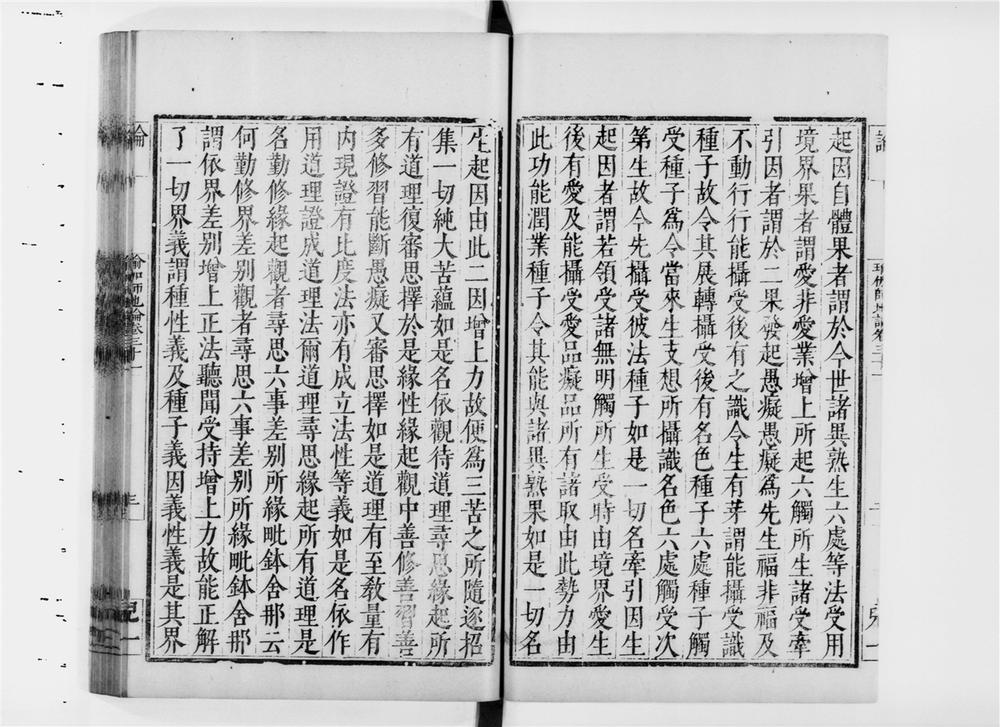 起因自體果者謂於今世諸異熟生六處等法受用
境界果者謂愛非愛業增上所起六觸所生諸受牽
引因者謂於二果發起愚癡愚癡為先生福非福及
不動行行能攝受後有之識令生有芽謂能攝受識
種子故令其展轉攝受後有名色種子六處種子觸
受種子爲令當來生支想所攝識名色六處觸受次
第生故今先攝受彼法種子如是一切名牽引因生
起因者謂若領受諸無明觸所生受時由境界愛生
後有愛及能攝受愛品癡品所有諸取由此勢力由
此功能潤業種子令其能與諸異熟果如是一切名
生起因由此二因增上力故便爲三苦之所隨逐招
集一切純大苦蘊如是名依觀待道理尋思緣起所
有道理復審思擇於是緣性緣起觀中善修善習善
多修習能斷愚癡又審思擇如是道理有至敎量有
内現證有比度法亦有成立法性等義如是名依作
用道理證成道理法爾道理尋思緣起所有道理是
名勤修緣起觀者尋思六事差别所緣毗鉢舍那云
何勤修界差别觀者尋思六事差别所緣毗鉢舍那
謂依界差别增上正法聽聞受持增上力故能正解
了一切界義謂種性義及種子義因義性義是其界
論
瑜伽師地論卷三十一
三